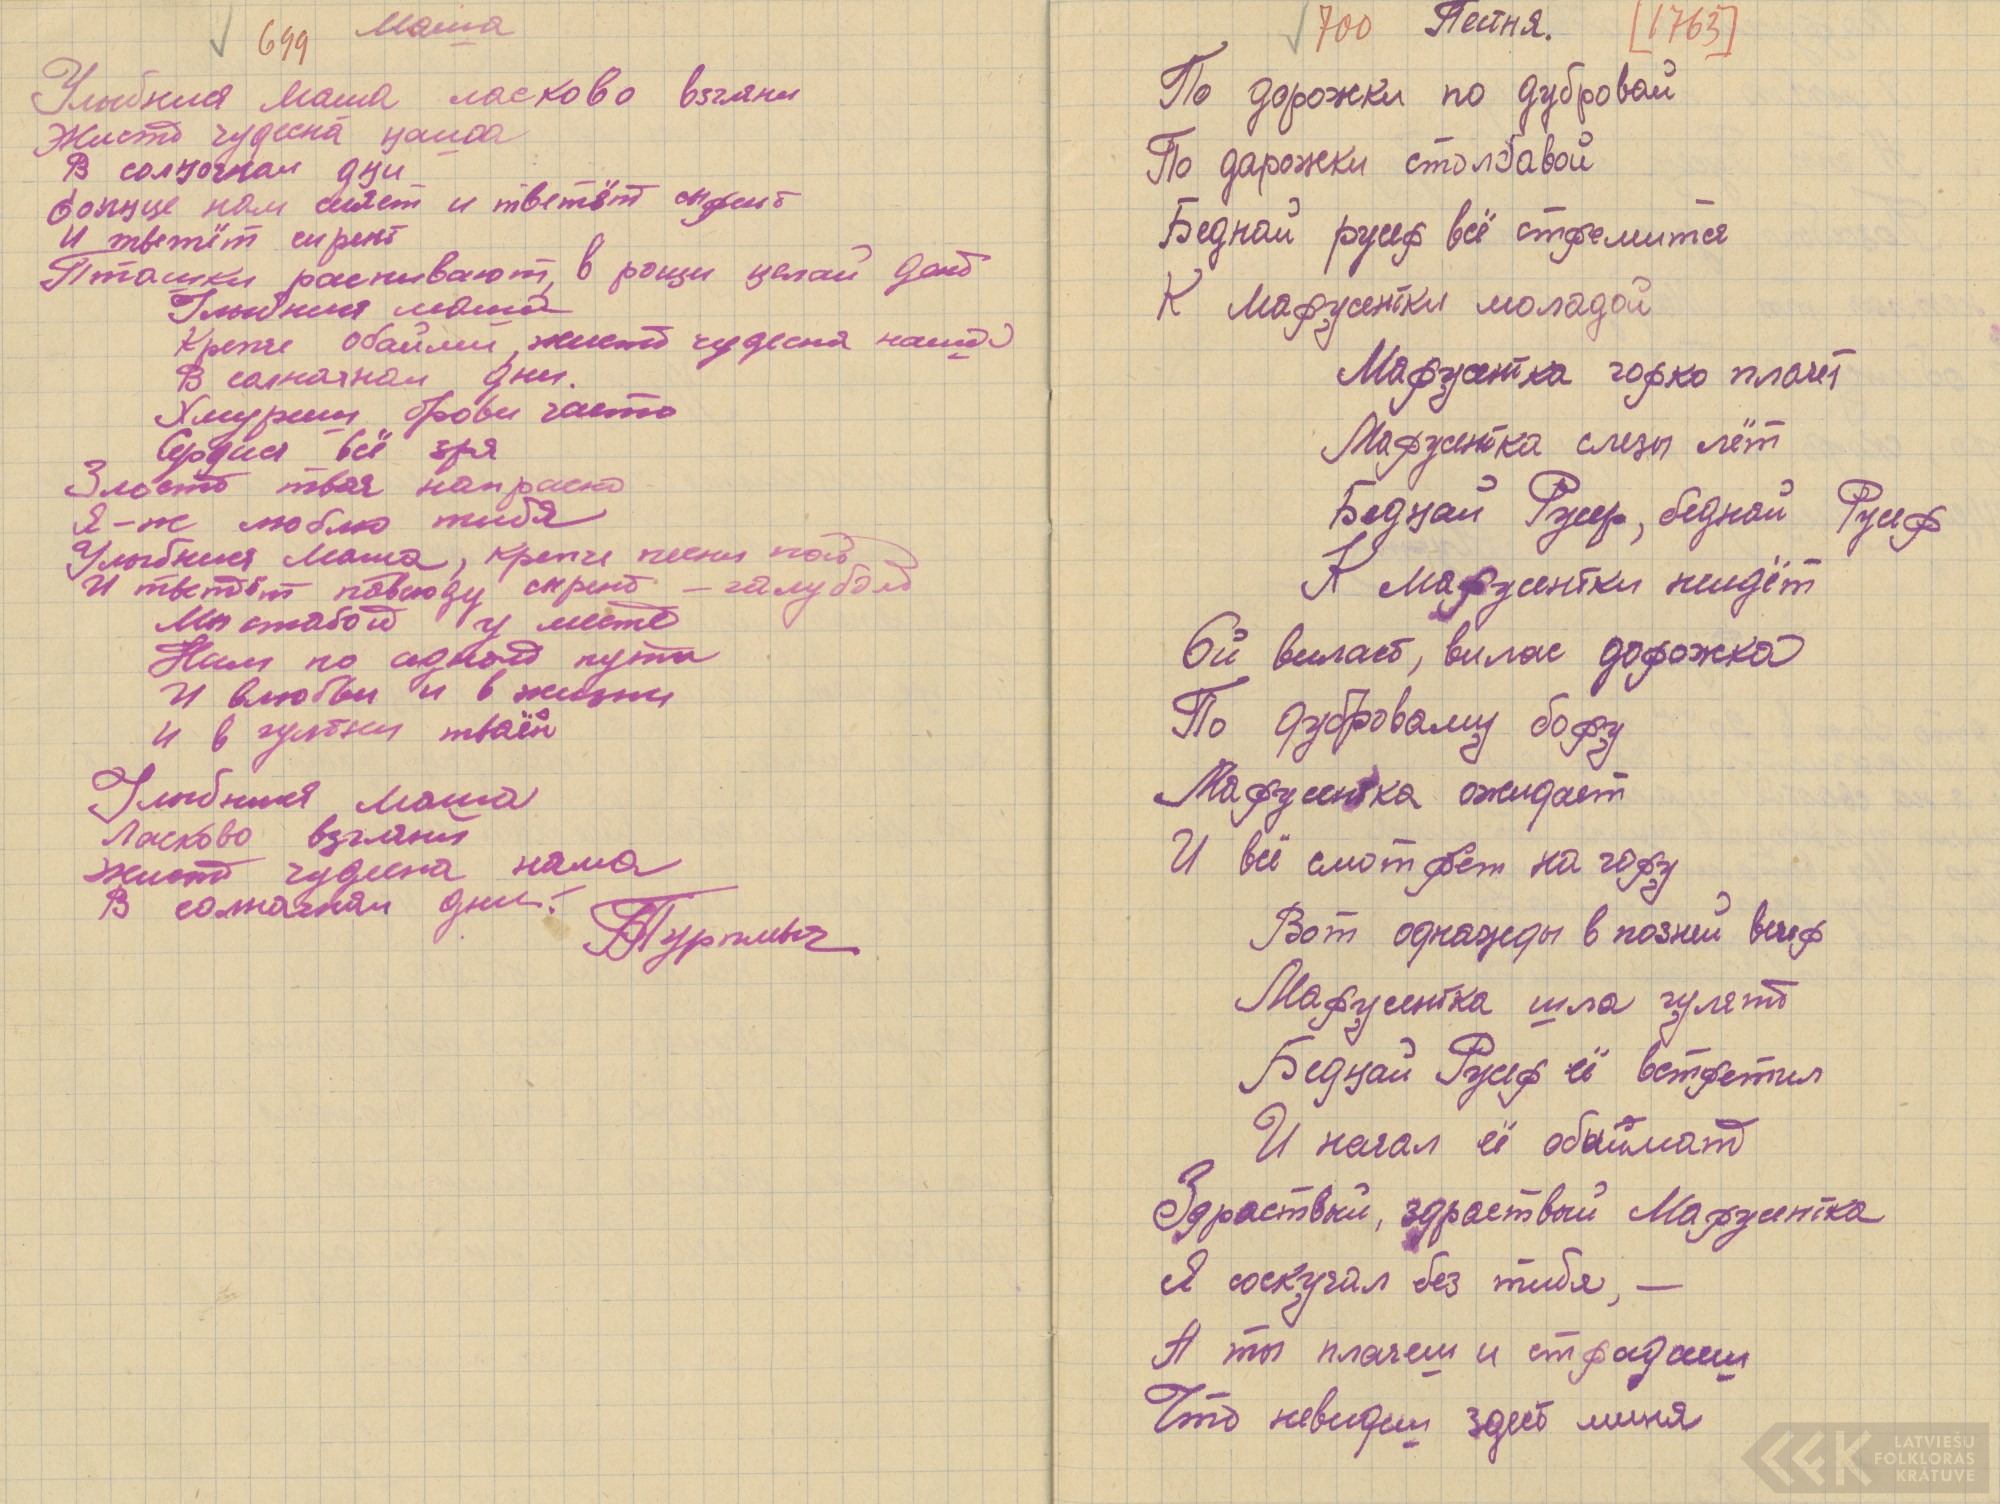 699 Маша
Улыбнися Маша ласково взгляни
Жисть чудесна наша
В солночнаи дни
Солнце нам сияет и тветёт сирень
И тветёт сирень
Пташки распивают, в рощи целай день
Улыбнися маша
Крепче обайми, жисть чудесна наша
В солначнаи дни.
Хмуриш брови часто
Сердися всё зря
Злость твоя напрасно
Я-ж люблю тибя
Улыбнися Маша, крепче песни пой
И тветёт повсюду сирень – галубой
Мы стабой у месте
Нам по одной пути
И влюбви и в жизни
И в гулянки тваёй
Улыбнися Маша
Ласково взгляни
Жисть чудесна наша
В солначнаи дни.
700 Песня. [1763]
По дорожки по дубровай
По дарожки столбавой
Беднай русер всё стремится
К Марусеньки моладой
Марусенька горко плачет
Марусенька слезы лёт
Беднай Русер, беднай Русер
К Марусеньки неидёт
Ой вилась, вилас дорожка
По дуброваму бору
Марусенька ожидает
И всё смотрет на гору
Вот однажды в позней вечер
Марусенька шла гулять
Беднай Русер её встретил
И начал её обаймать
Здраствый, здраствый Марусенька
Я соскучал без тибя, —
А ты плачеш и страдаеш
Что невидиш здесь миня
LATVIEŠU
FOLKLORAS
KRĀTUVE